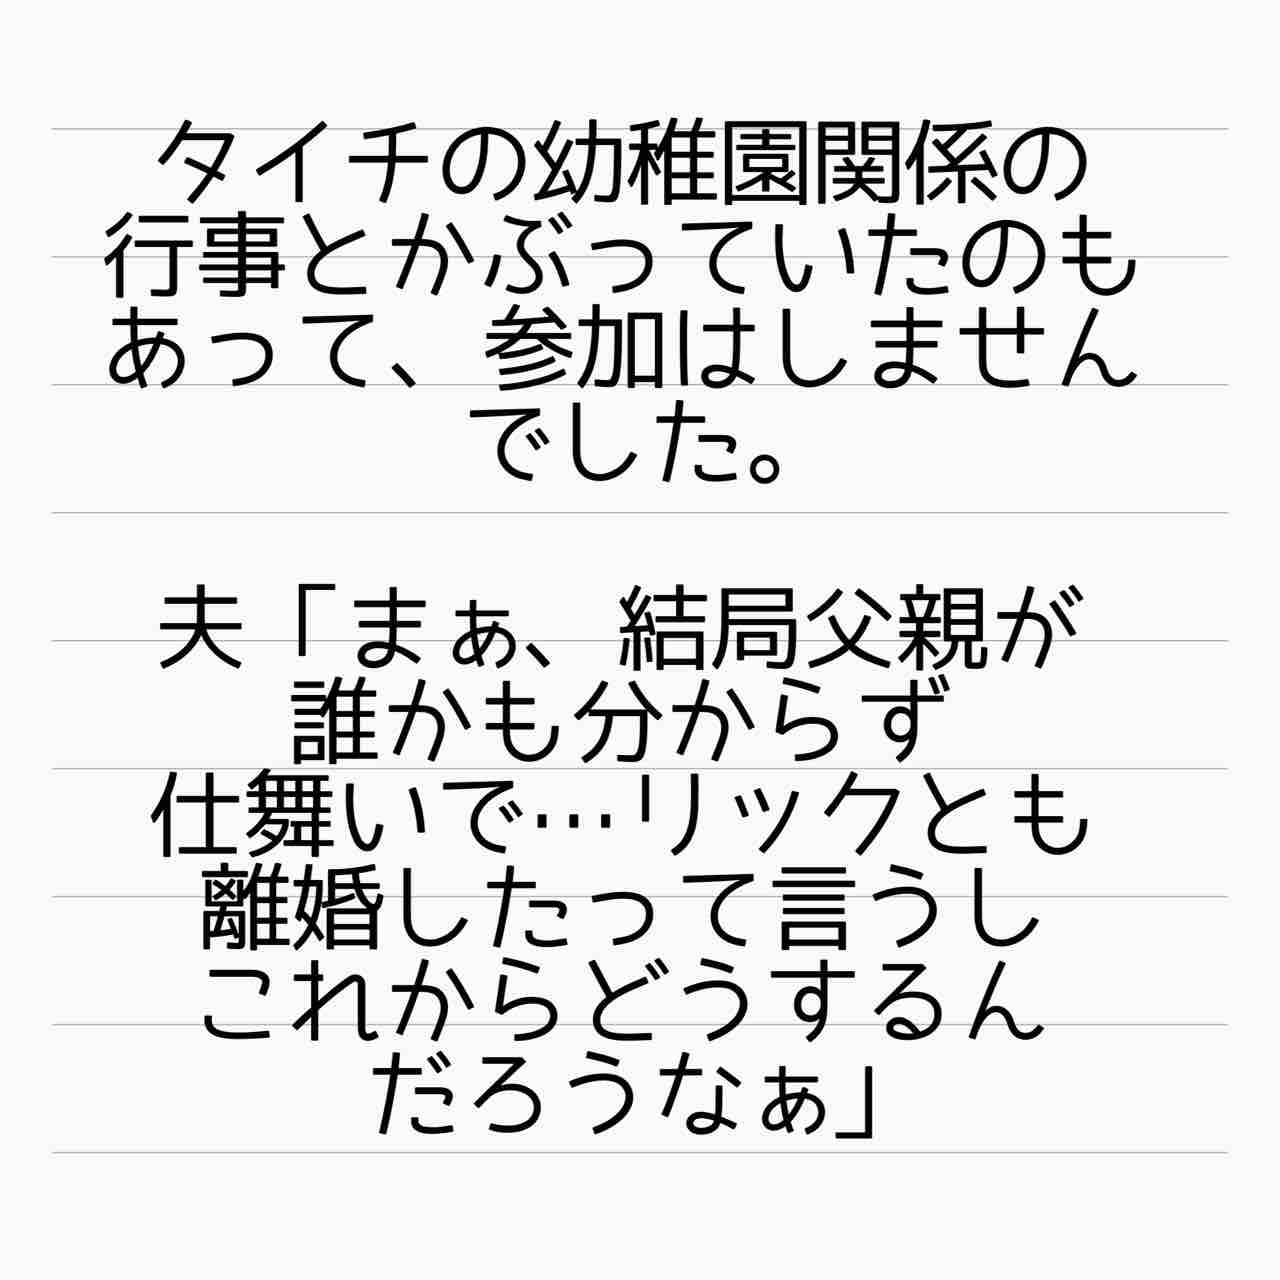 タイチの幼稚園関係の
行事とかぶっていたのも
あって、参加はしません
でした。
夫「まぁ、結局父親が
誰かも分からず
仕舞いで…リックとも
離婚したって言うし
これからどうするん
だろうなぁ」